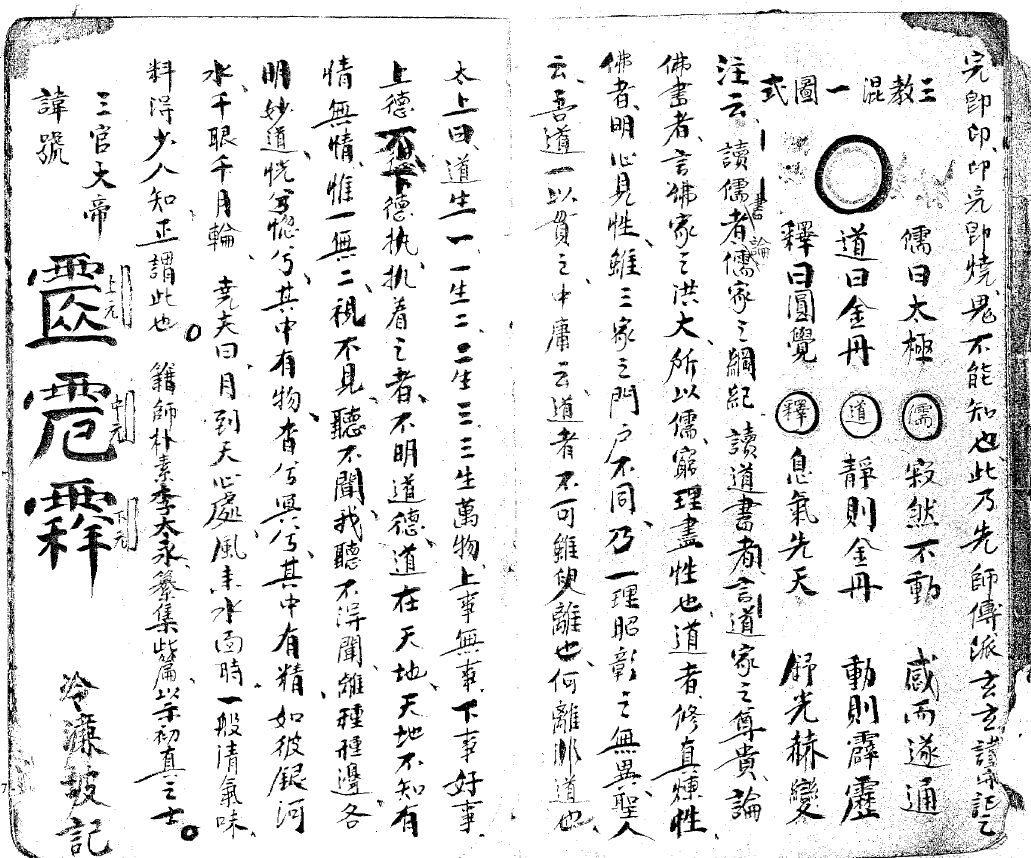 完卽印、印完卽燒、鬼不能知也、此乃先師傳派玄玄謹筆記之
三教混一圖式
儒曰太極 儒 寂然不動 感而遂通
道曰金丹 道 靜則金丹 動則霹靂
釋曰圓覺 釋 息氣先天 舒光赫變
注云 讀儒書者論儒家之綱紀、讀道書者、言道家之尊貴、論
佛書者、言佛家之洪大、所以儒、窮理盡性也、道者、修真煉性、
佛者、明心見性、雖三家之門戶不同、乃一理昭彰之無異、聖人
云、吾道一以貫之、中庸云、道者不可須臾離也、何離非道也、
太上曰、道生一、一生二、二生三、三生萬物、上事無事、下事好事、
上德不德、下德執、執着之者、不明道德、道在天地、天地不知有
情無情、惟一無二、視不見、聽不聞、我聽不淂聞、雖種種邊、各
明妙道、恍兮惚兮、其中有物、杳兮冥兮、其中有精、如彼銀河
水、千眼千月輪、堯夫曰、月到天心處、風來水面時、一般清氣味、
料淂少人知正謂此也。 籍師朴素李太永纂集此篇、以示初真之士。
三官大帝
諱號
上元
中元
下元
冷濂坡記